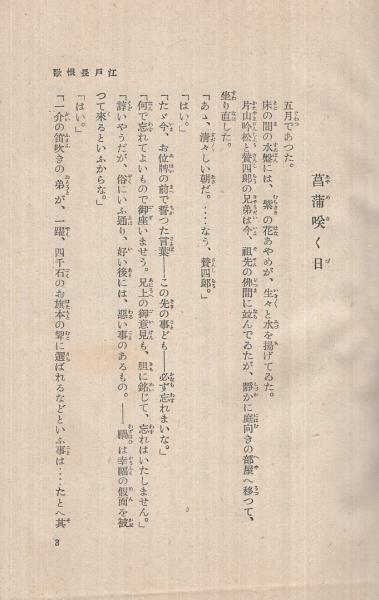 江戸長恨歌
菖蒲咲く日
五月であつた。
床の間の水盤には、紫の花あやめが、生々と水を揚げてゐた。
片山吟松と賛四郎の兄弟は今、祖先の佛間に竝んでゐたが、靜かに庭向きの部屋へ移つて、
坐り直した。
「あゝ、清々しい朝だ。‥‥なう、賛四郎。」
「はい。」
「たゞ今、お位牌の前で誓つた言葉――この先の事ども――必ず忘れまいな。」
「何で忘れてよいもので御座いませう。兄上の御意見も、胆に銘じて、忘れはいたしません。」
「諄いやうだが、俗にいふ通り、好い後には、惡い事のあるもの。――禍は幸福の假面を被
つて來るといふからな。」
「はい。」
「一介の笛吹きの弟が、一躍、四千石のお旗本の聟に選ばれるなどといふ事は‥‥たとへ其
3